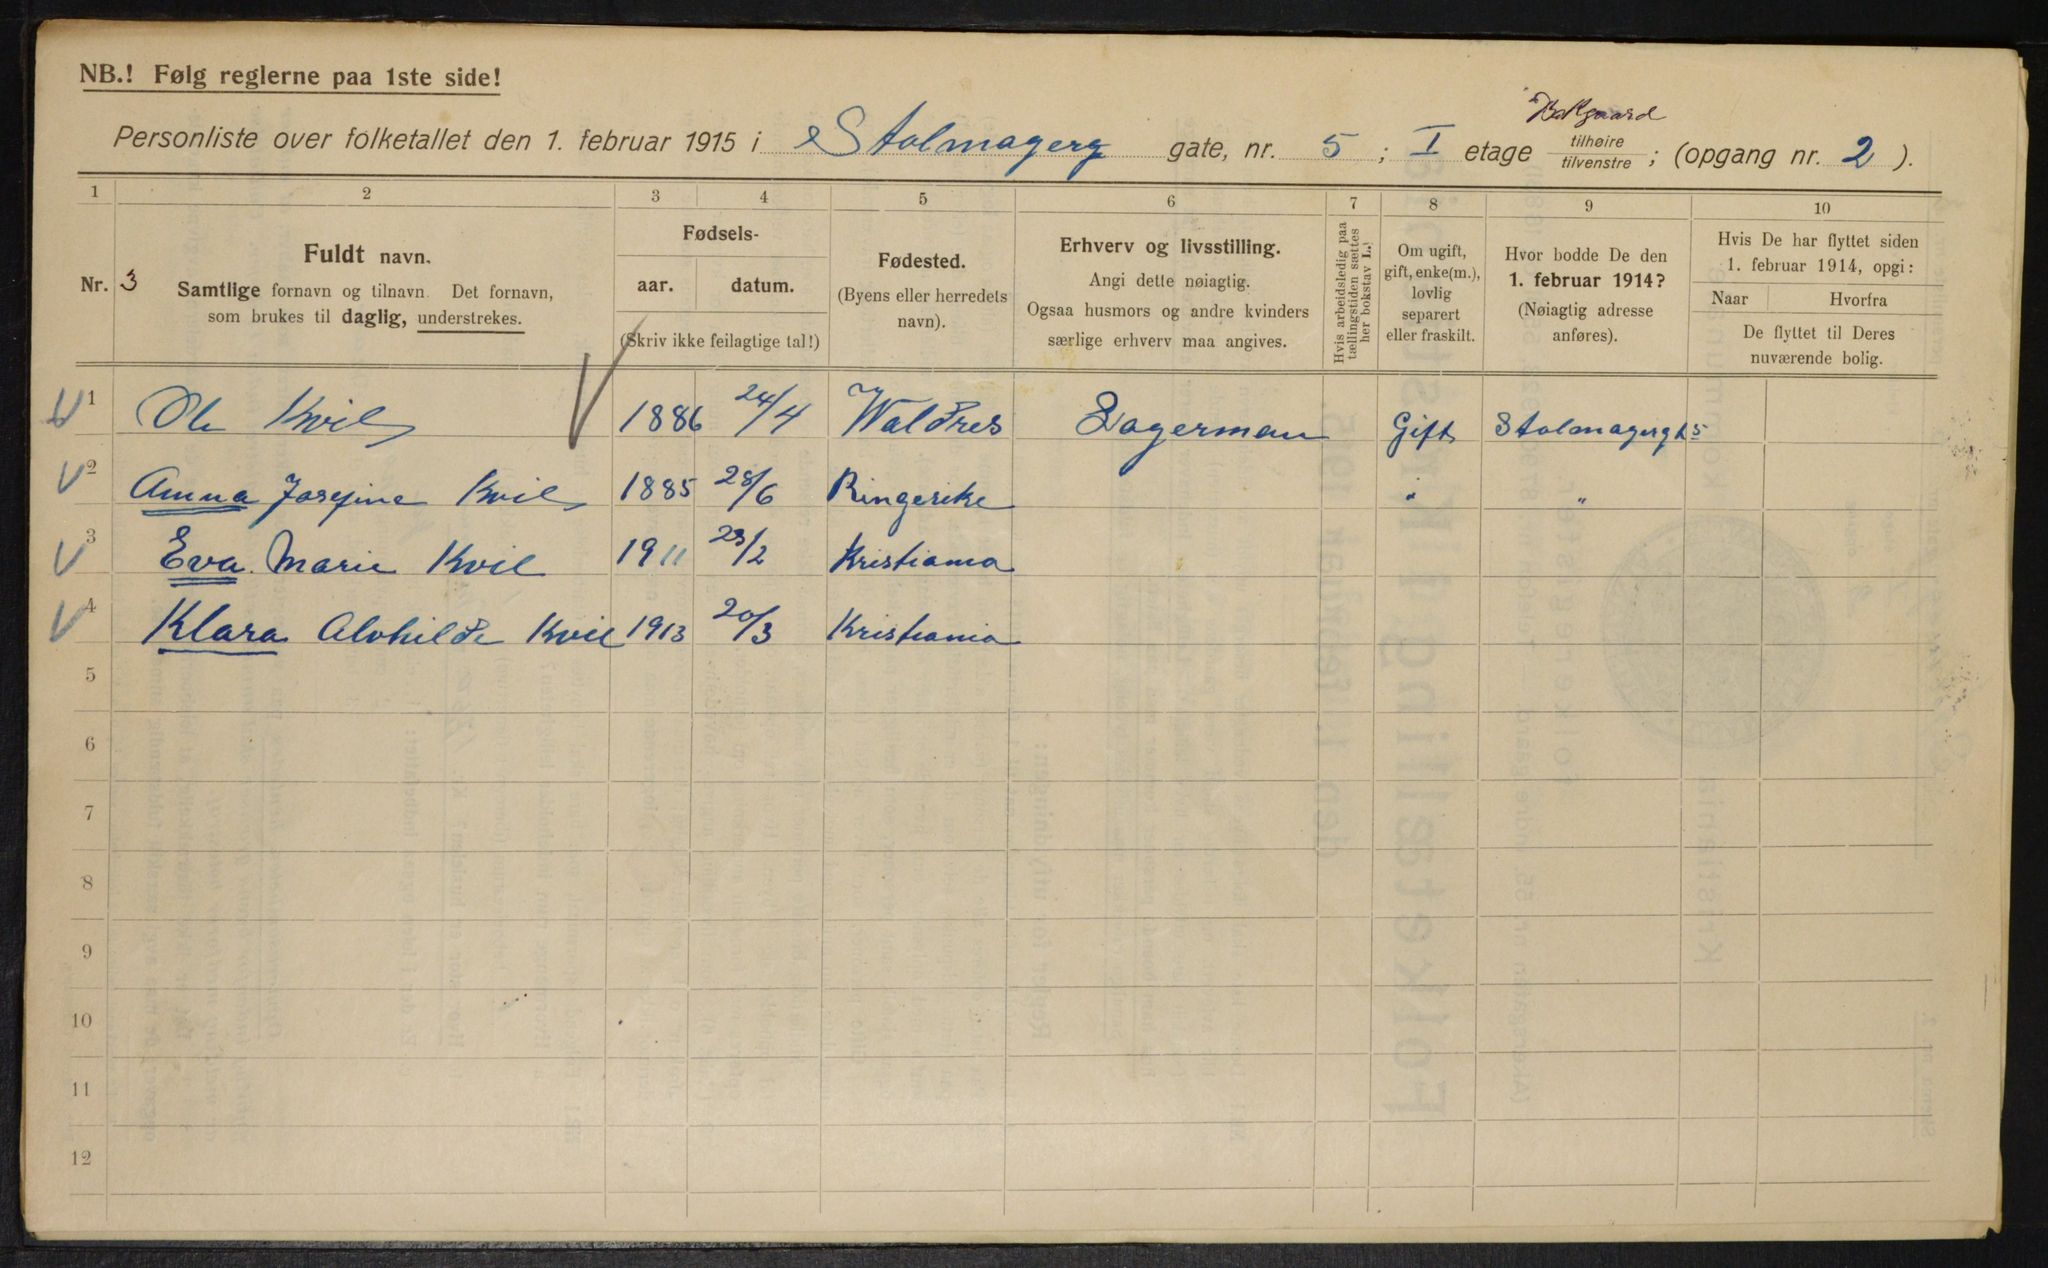 NB.! Følg reglerne paa 1ste side!
Bakgaard
Personliste over folketallet den 1. februar 1915 i Stolmagerg gate, nr. 5 ; I etage tilhøire / tilvenstre ; (opgang nr. 2 ).
1 2 3 4 5 6 7 8 9 10
Nr. 3
Fuldt navn.
Samtlige fornavn og tilnavn. Det fornavn,
som brukes til daglig, understrekes.
Fødsels-
aar. datum.
(Skriv ikke feilagtige tal!)
Fødested.
(Byens eller herredets
navn).
Erhverv og livsstilling.
Angi dette nøiagtig.
Ogsaa husmors og andre kvinders
særlige erhverv maa angives.
Hvis arbeidsledig paa
tællingstiden sættes
her bokstav L.
Om ugift,
gift, enke(m.),
lovlig
separert
eller fraskilt.
Hvor bodde De den
1. februar 1914?
(Nøiagtig adresse
anføres).
Hvis De har flyttet siden
1. februar 1914, opgi:
Naar Hvorfra
De flyttet til Deres
nuværende bolig.
1 Ole Kvil 1886 24/4 Waldres Lagerman Gift Stolmagergt 5
2 Anna Josefine Kvil 1885 28/6 Ringerike " "
3 Eva Marie Kvil 1911 23/2 Kristiania
4 Klara Alvhilde Kvil 1913 20/3 Kristiania
5
6
7
8
9
10
11
12